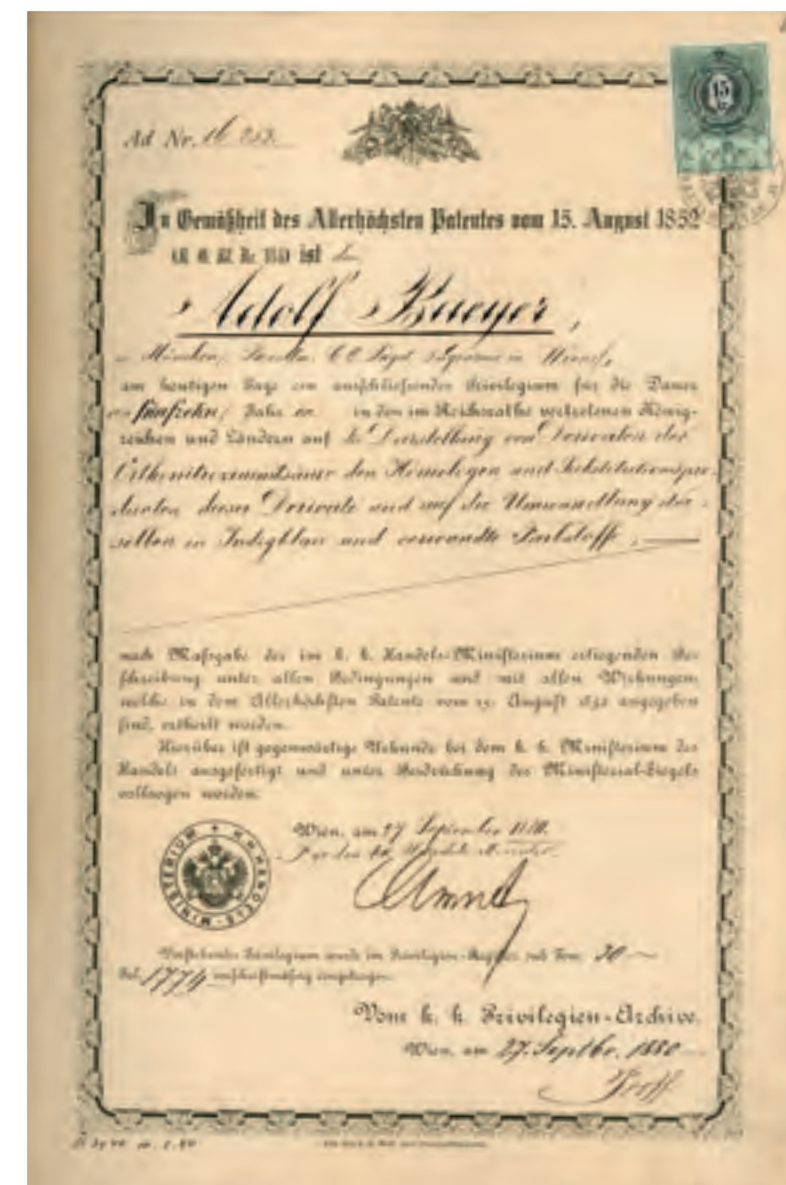 Ad Nr. 16 253
15
In Gemäßheit des Allerhöchsten Patentes vom 15. August 1852
ist dem
Adolf Baeyer,
in München,
am heutigen Tage ein ausschließendes Privilegium für die Dauer
von fünfzehn Jahren in den im Reichsrathe vertretenen König-
reichen und Ländern auf die Darstellung von Derivaten der
Orthonitrozimmtsäure den Homologen und Substitutionspro-
dukten dieser Derivate und auf die Umwandlung der-
selben in Indigblau und verwandte Farbstoffe,
nach Maßgabe der im k. k. Handels-Ministerium erliegenden Be-
schreibung unter allen Bedingungen und mit allen Wirkungen
welche in dem Allerhöchsten Patente vom 15. August 1852 angegeben
sind, ertheilt worden.
Hierüber ist gegenwärtige Urkunde bei dem k. k. Ministerium des
Handels ausgefertigt und unter Beidrückung des Ministerial-Siegels
vollzogen worden.
K. K. HANDELS-MINISTERIUM WIEN
Wien, am 27 September 1880.
Für den k.k. Handels Minister
Vorstehendes Privilegium wurde im Privilegien-Register sub Tom. 30
Fol. 1774 vorschriftmäßig eingetragen.
Vom k. k. Privilegien-Archive.
Wien, am 27. Septbr. 1880